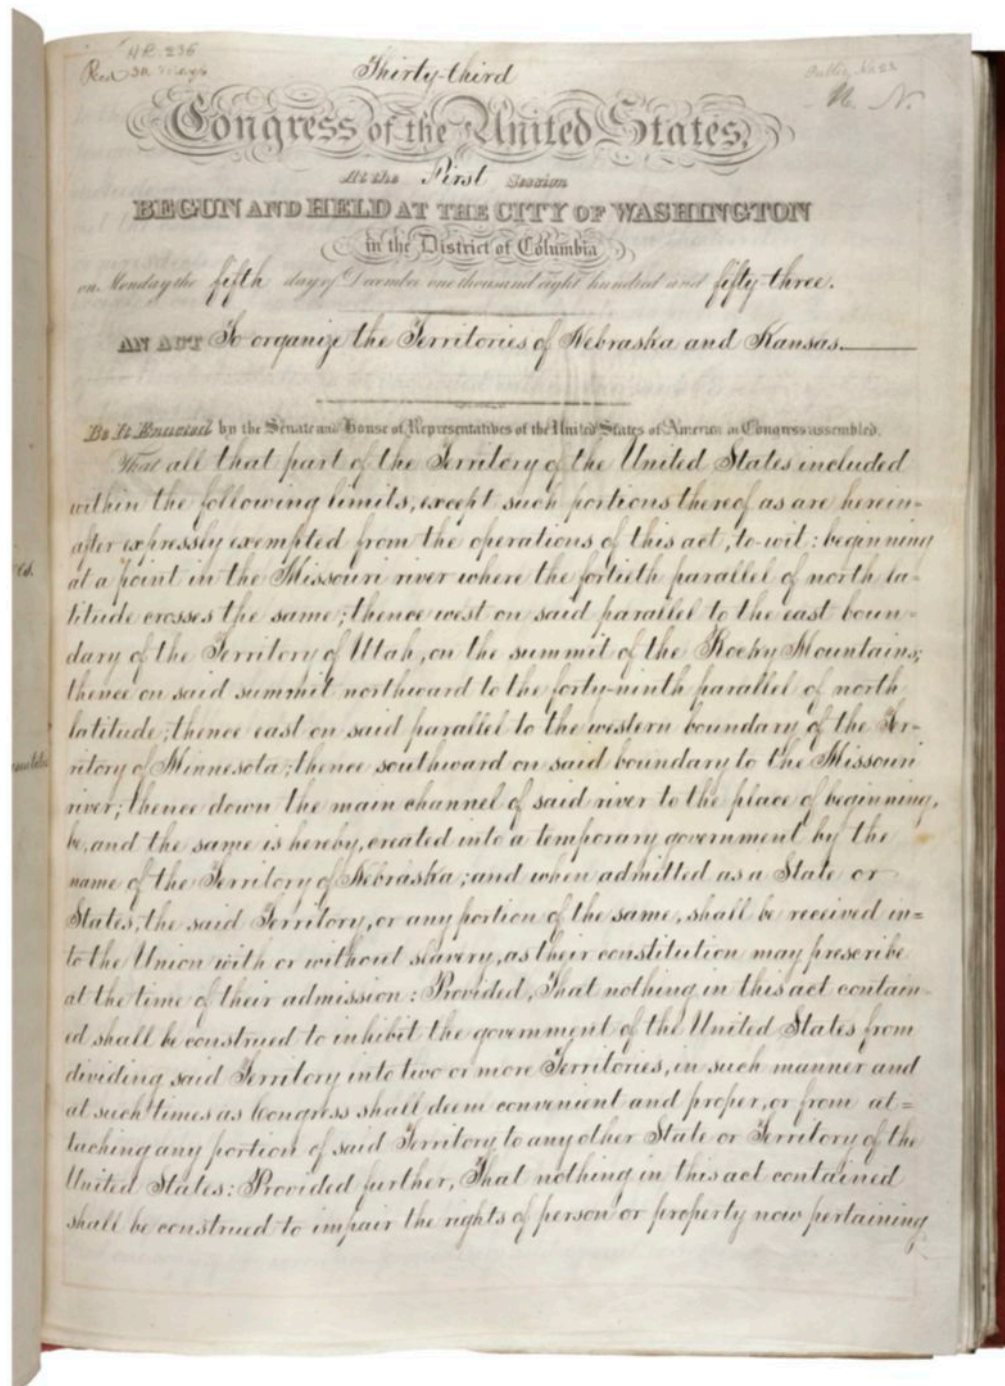 H.R. 236
Thirty-third
Congress of the United States,
At the First Session
BEGUN AND HELD AT THE CITY OF WASHINGTON
in the District of Columbia
on Monday the fifth day of December one thousand eight hundred and fifty-three.
AN ACT To organize the Territories of Nebraska and Kansas.
Be It Enacted by the Senate and House of Representatives of the United States of America in Congress assembled,
That all that part of the Territory of the United States included
within the following limits, except such portions thereof as are herein=
after expressly exempted from the operations of this act, to-wit: beginning
at a point in the Missouri river where the fortieth parallel of north la=
titude crosses the same; thence west on said parallel to the east boun=
dary of the Territory of Utah, on the summit of the Rocky Mountains;
thence on said summit northward to the forty-ninth parallel of north
latitude; thence east on said parallel to the western boundary of the Ter-
ritory of Minnesota; thence southward on said boundary to the Missouri
river; thence down the main channel of said river to the place of beginning,
be, and the same is hereby, created into a temporary government by the
name of the Territory of Nebraska; and when admitted as a State or
States, the said Territory, or any portion of the same, shall be received in=
to the Union with or without slavery, as their constitution may prescribe
at the time of their admission: Provided, That nothing in this act contain-
ed shall be construed to inhibit the government of the United States from
dividing said Territory into two or more Territories, in such manner and
at such times as Congress shall deem convenient and proper, or from at=
taching any portion of said Territory to any other State or Territory of the
United States: Provided further, That nothing in this act contained
shall be construed to impair the rights of person or property now pertaining